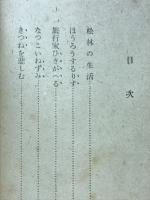 目次
松林の生活
ほうろうするりす
旅行家ひきがえる
なつこいねずみ
きつねを悲しむ